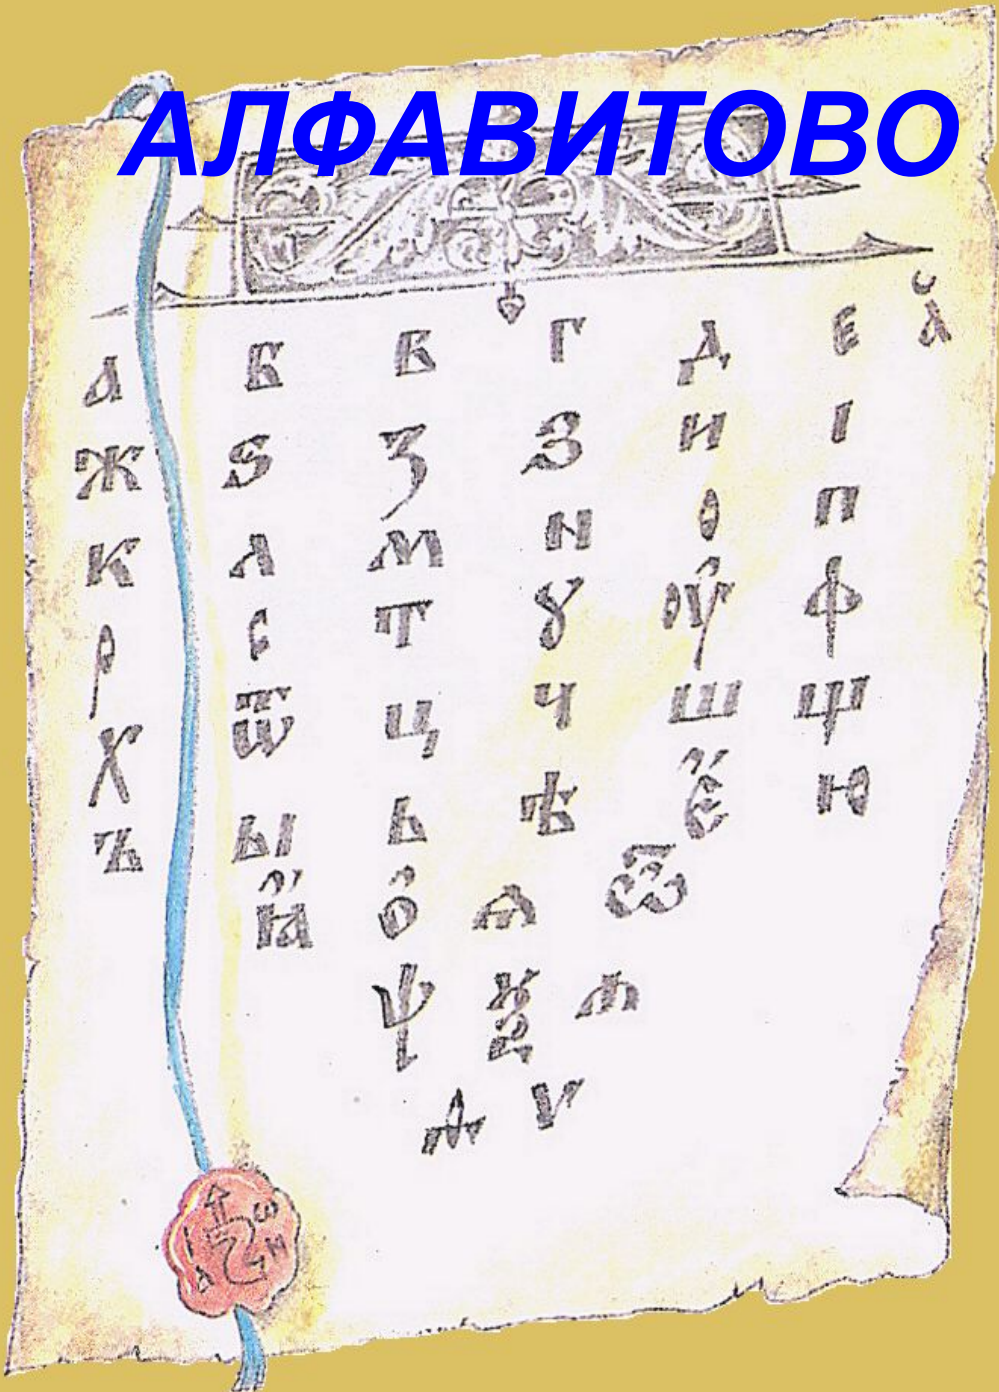 АЛФАВИТОВО
А Б В Г Д Е Д̆
Ж Ѕ Ӡ З И І
К Л М Н О П
Р С Т Ꙋ Оу̑ Ф
Х Ѿ Ц Ч Ш Щ
Ъ Ы Ь Ѣ Є Ю
Ꙗ О̑ Ѧ Ѿ
Ѱ Ѯ Ѧ
Ѧ Ѵ